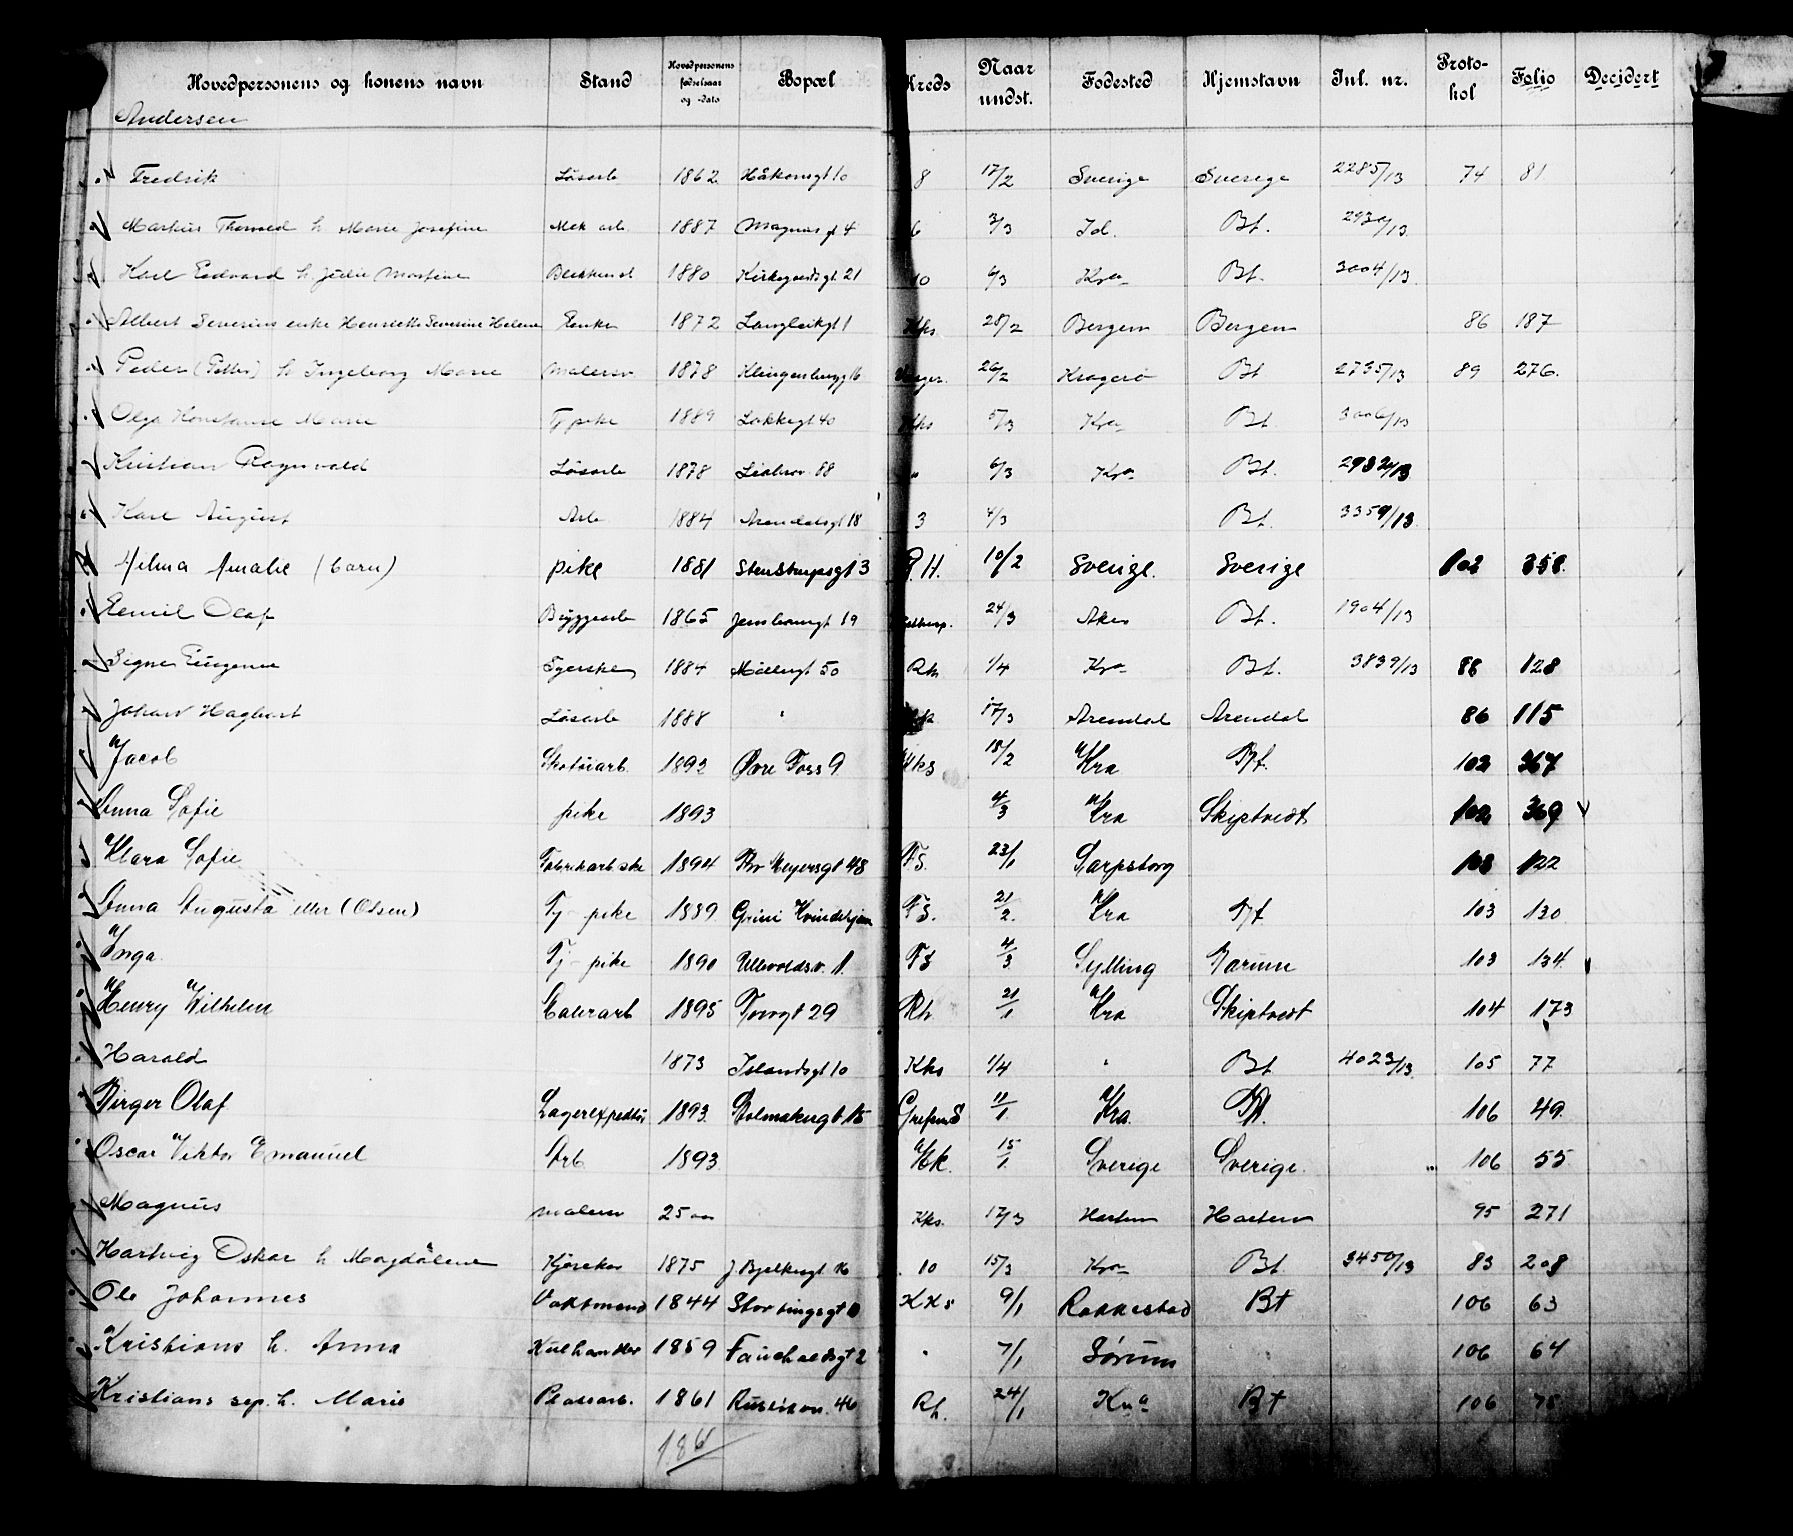 Hovedpersonens og konens navn Stand Hovedpersonens fødselsaar og -dato Bopæl Kreds Naar undst. Fødested Hjemstavn Inl. nr. Protokol Folio Decidert
Andersen
Fredrik Løsarb 1862 Håkonsgt 10 8 17/2 Sverige Sverige 2285/13 74 81
Markus h. Marie Josefine Mek arb. 1887 Magnus gt 4 6 3/3 Id. Bt. 2930/13
Karl Edvard h. Julie 1880 Kirkegaardsgt 21 10 6/3 Kra Bt. 3004/13
Albert Severins enke Henriette Severine Helene Enke 1872 Langleikgt 1 Kks 28/2 Bergen Bergen 86 187
Peder (Petter) h Ingeborg Marie Malersv 1878 Klingenbergg 16 26/2 Kragerø Bt 2735/13 89 276.
Olga Konstanse Marie Tj pike 1889 Lakkegt 40 Kks 5/3 Kra Bt. 3006/13
Kristian Ragnvald Løsarb 1878 88 " 6/3 Kra Bt. 2982/13
Karl August Arb 1884 Arendalsgt 18 3 4/3 Bt. 3359/13
Hilma Amalie (barn) pike 1881 Stenstrupsgt 3 R.H. 10/2 Sverige. Sverige 102 358
Emil Olaf Byggearb 1865 19 24/3 Aker Bt. 1904/13
Signe Eugenie Syerske 1884 Møllergt 50 Rh 1/4 Kra Bt. 3839/13 88 128
Johan Hagbart Løsarb 1888 " 17/3 Arendal Arendal 86 115
Jacob Skotøiarb. 1892 Øvre Foss 9 Kks 18/2 Kra Bt. 102 367
Anna Sofie pike 1893 4/3 Kra Skiptvedt 102 369
Klara Sofie Fabrikarb.ske 1894 Thv Meyersgt 48 FS. 23/1 Sarpsborg 103 122
Anna Augusta eller (Olsen) Tj-pike 1889. Grini Kvindehjem FS. 21/2. Kra Bt 103 130
Inga Tj-pike 1890 Ullevoldsv. 1. FS 4/3 Sylling Bærum 103 134
Henry Wilhelm 1895 Torvgt 29 Rh 21/1 Kra Skiptvedt 104 173
Harald 1873 Islandsgt 10 Kks 1/4 " Bt 4023/13 105 77
Birger Olaf Lagerexpeditør 1893. Stolmakergt 15 GrefsenS 11/1 Kra. Bt. 106 49.
Oscar Viktor Emanuel Arb 1893 Hk. 15/1. Sverige Sverige. 106 55
Magnus malersv 25 aar Kks. 17/3 95 271
Hartvig Oskar h Magdalene Kjørekar 1875 J. Bjelkesgt 16 10 15/3 Kra Bt 3450/13 83 208
Ole Johannes Vaktmand 1844 Stortingsgt KKs 9/1 Rakkestad Bt 106 63
Kristians h. Anna Kulhandler 1859 Fauchaldsgt 2 " 7/1 Sørum 106 64
Kristians sep. h. Marie Pladsarb. 1861 46 Rh. 24/1 Kra Bt 106 75
186